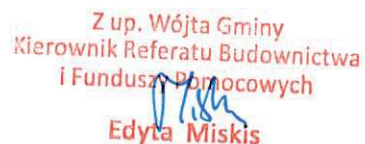 Z up. Wójta Gminy
Kierownik Referatu Budownictwa
i Funduszy Pomocowych
Edyta Miskis